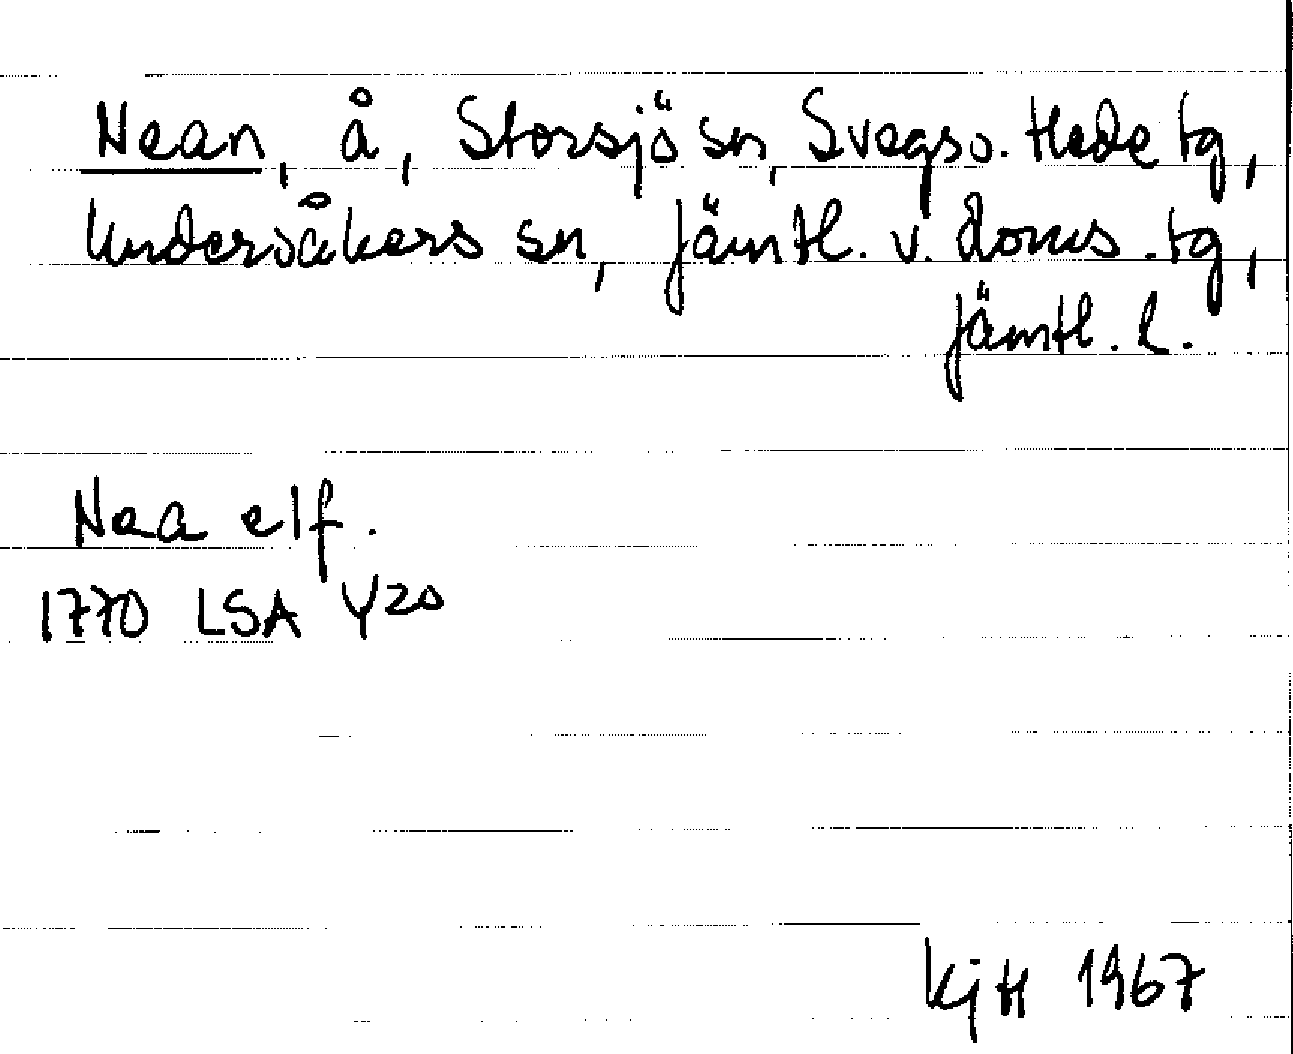 Nean, å, Storsjö sn, Svegs o. Hede tg,
Undersåkers sn, Jämtl. v. doms. tg,
Jämtl. l.
Nea elf.
1770 LSA Y20
KjH 1967